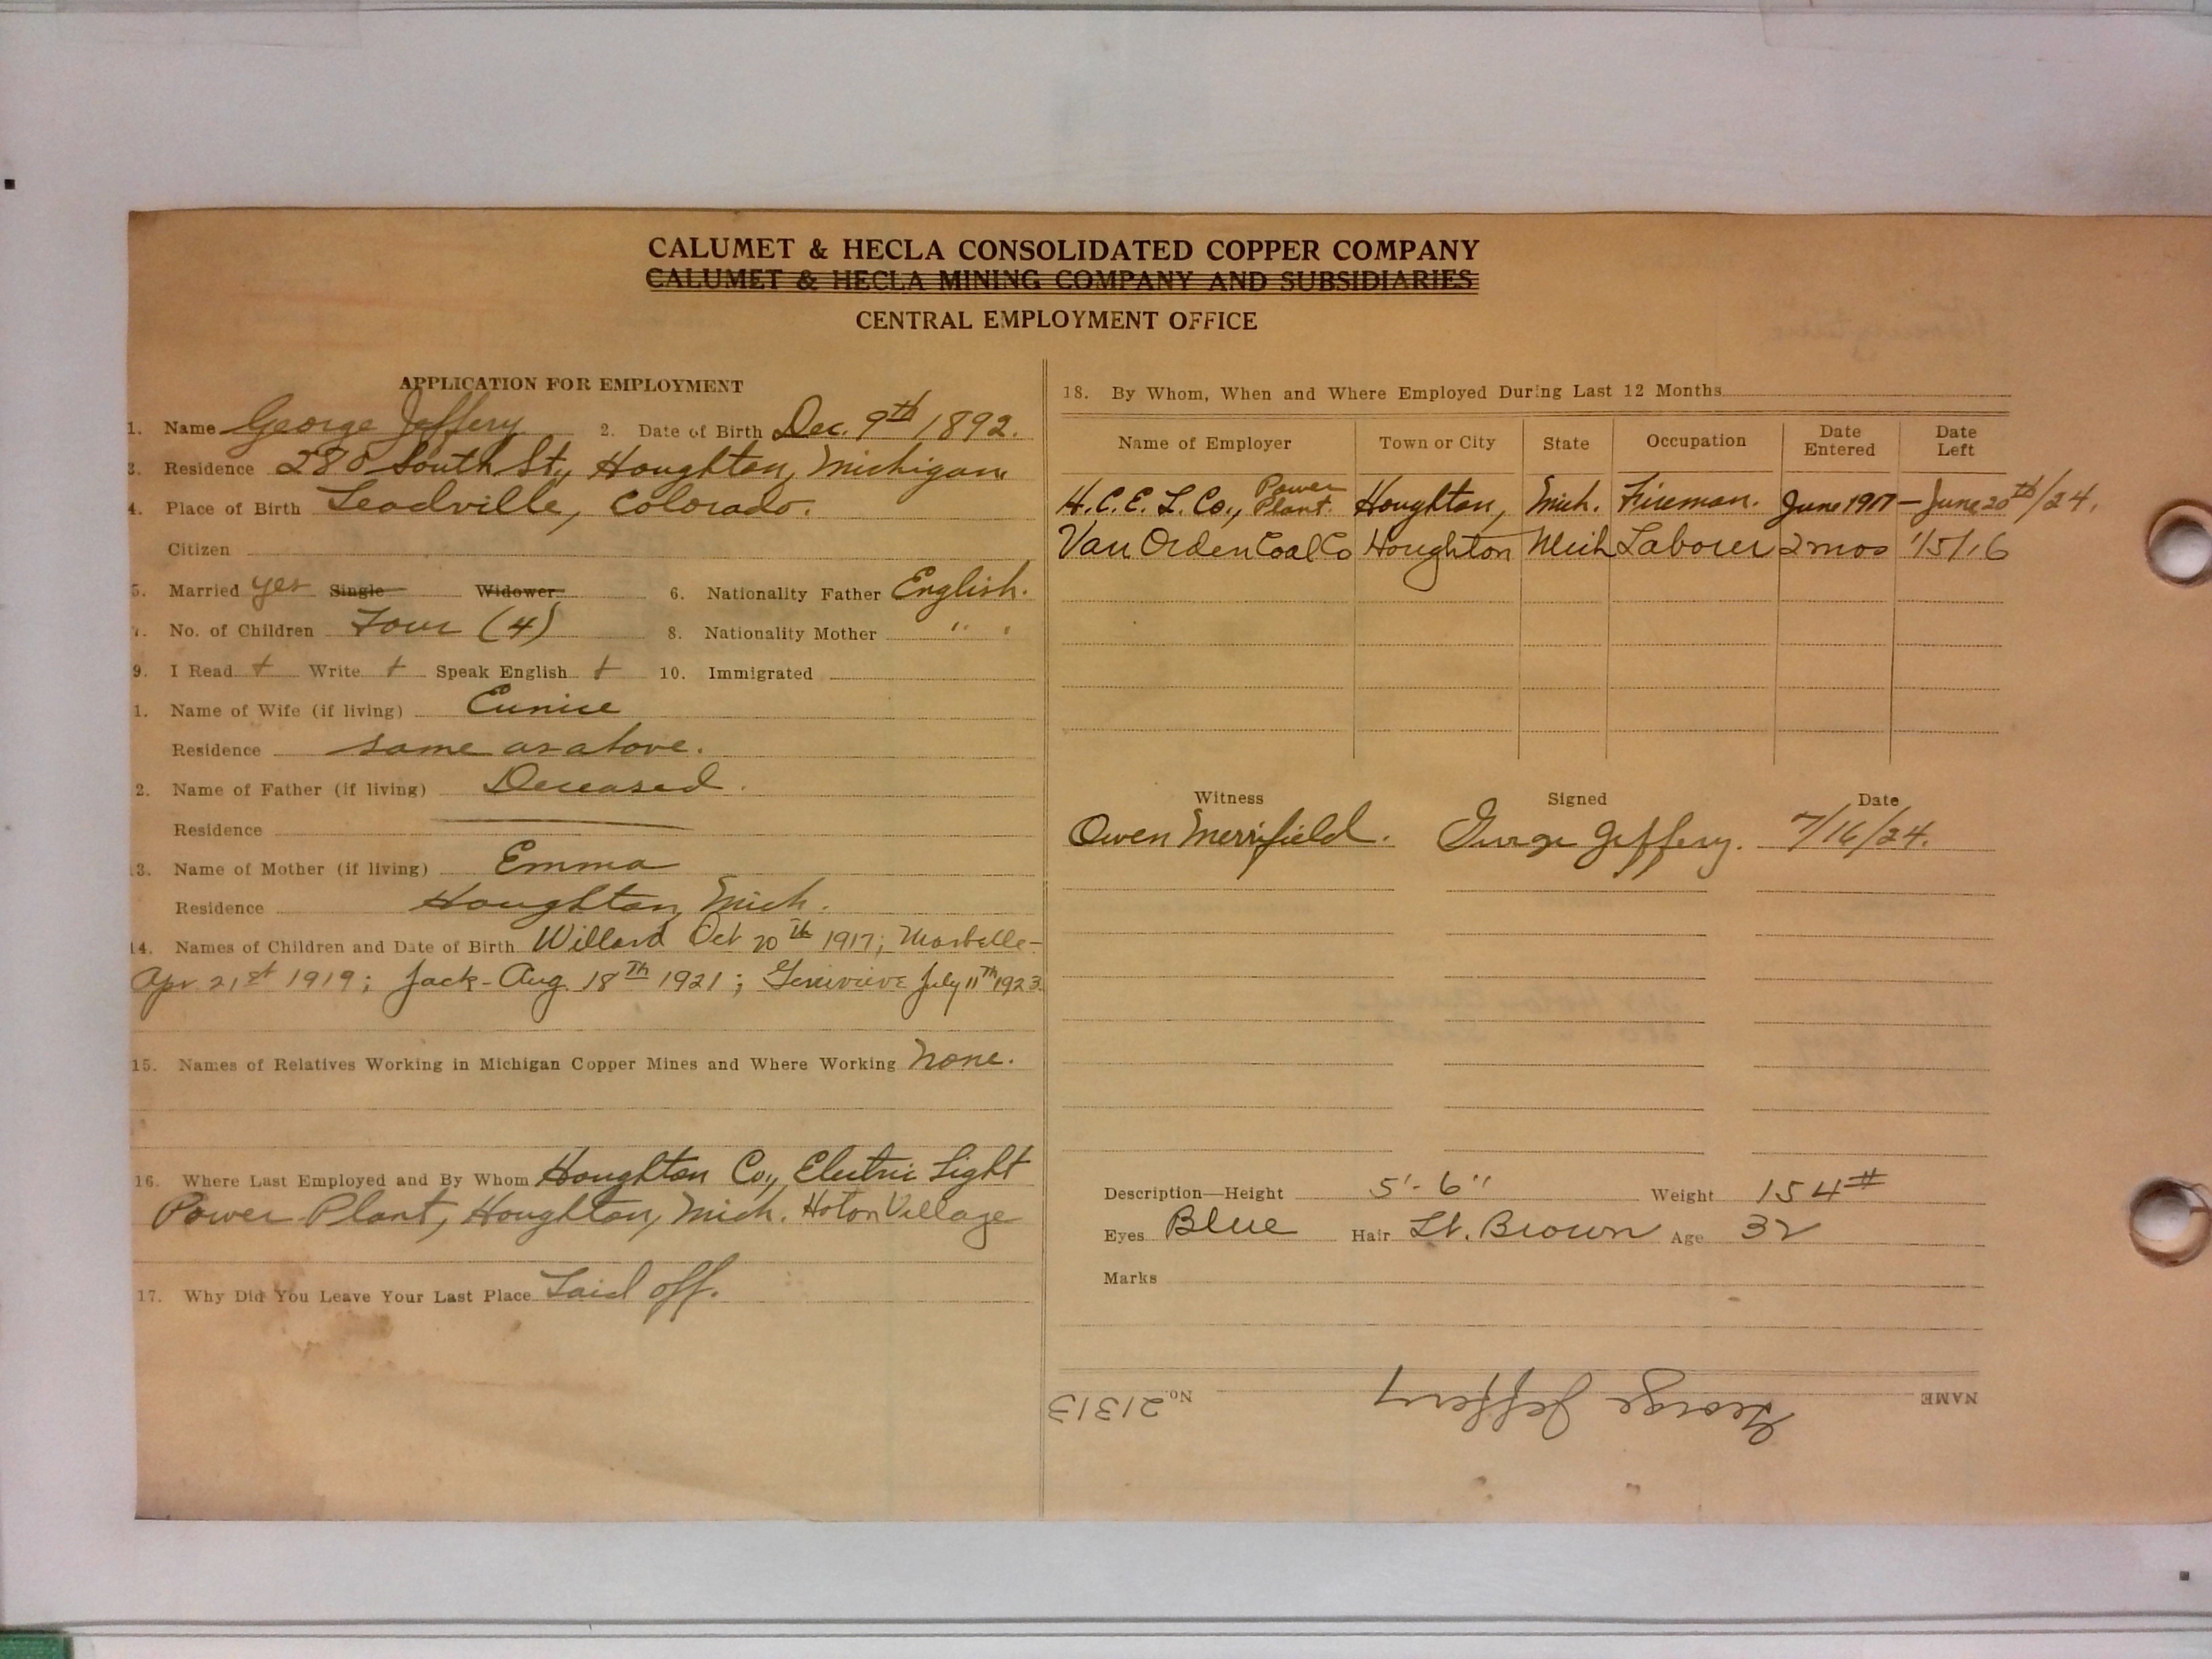 CALUMET & HECLA CONSOLIDATED COPPER COMPANY
CALUMET & HECLA MINING COMPANY AND SUBSIDIARIES
CENTRAL EMPLOYMENT OFFICE
APPLICATION FOR EMPLOYMENT
1. Name George Jeffery 2. Date of Birth Dec. 9th 1892.
3. Residence 280 South St., Houghton, Michigan.
4. Place of Birth Leadville, Colorado.
Citizen
5. Married yes Single Widower 6. Nationality Father English.
7. No. of Children Four (4) 8. Nationality Mother " "
9. I Read + Write + Speak English + 10. Immigrated
1. Name of Wife (if living) Eunice
Residence same as above.
2. Name of Father (if living) Deceased.
Residence
13. Name of Mother (if living) Emma
Residence Houghton, Mich.
14. Names of Children and Date of Birth Willard Oct 20th 1917;
Apr. 21st 1919; Jack-Aug. 18Th 1921; Genevieve July 11Th 1923.
15. Names of Relatives Working in Michigan Copper Mines and Where Working None.
16. Where Last Employed and By Whom Houghton Co., Electric Light
Power Plant, Houghton, Mich. Hoton Village
17. Why Did You Leave Your Last Place Laid off.
18. By Whom, When and Where Employed During Last 12 Months
Name of Employer Town or City State Occupation Date Entered Date Left
H.C.E.L. Co., Power Plant. Houghton, Mich. Fireman. June 1917 - June 20th/24.
Van Orden Coal Co Houghton Mich Laborer 2 mos 1/5/16
Witness Signed Date
Owen Merrifield. George Jeffery. 7/16/24.
Description—Height 5'-6" Weight 154#
Eyes Blue Hair Lt. Brown Age 32
Marks
NAME George Jeffery No. 21313